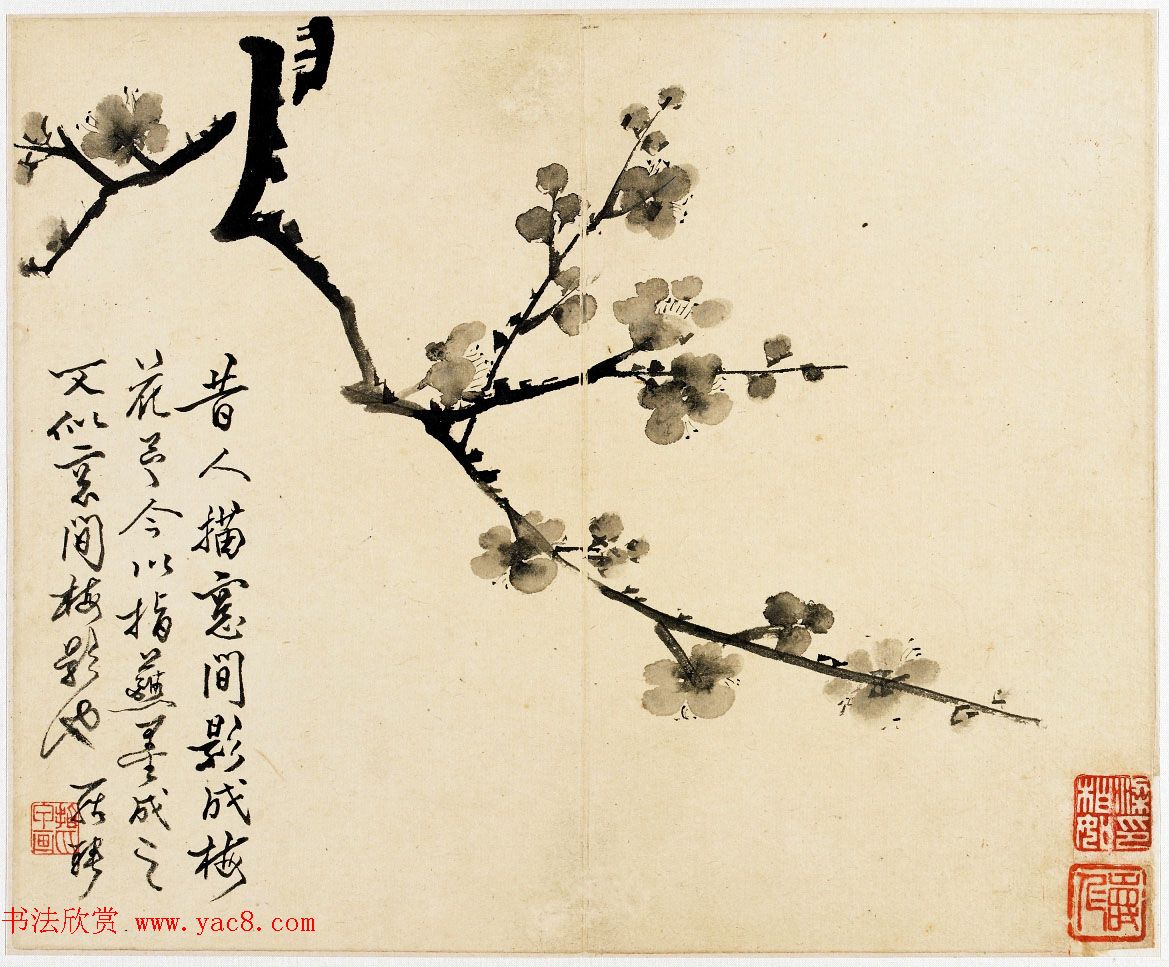 昔人描窻間影成梅
花今以指蘸墨成之
又似窻間梅影也 羅聘
书法欣赏 www.yac8.com